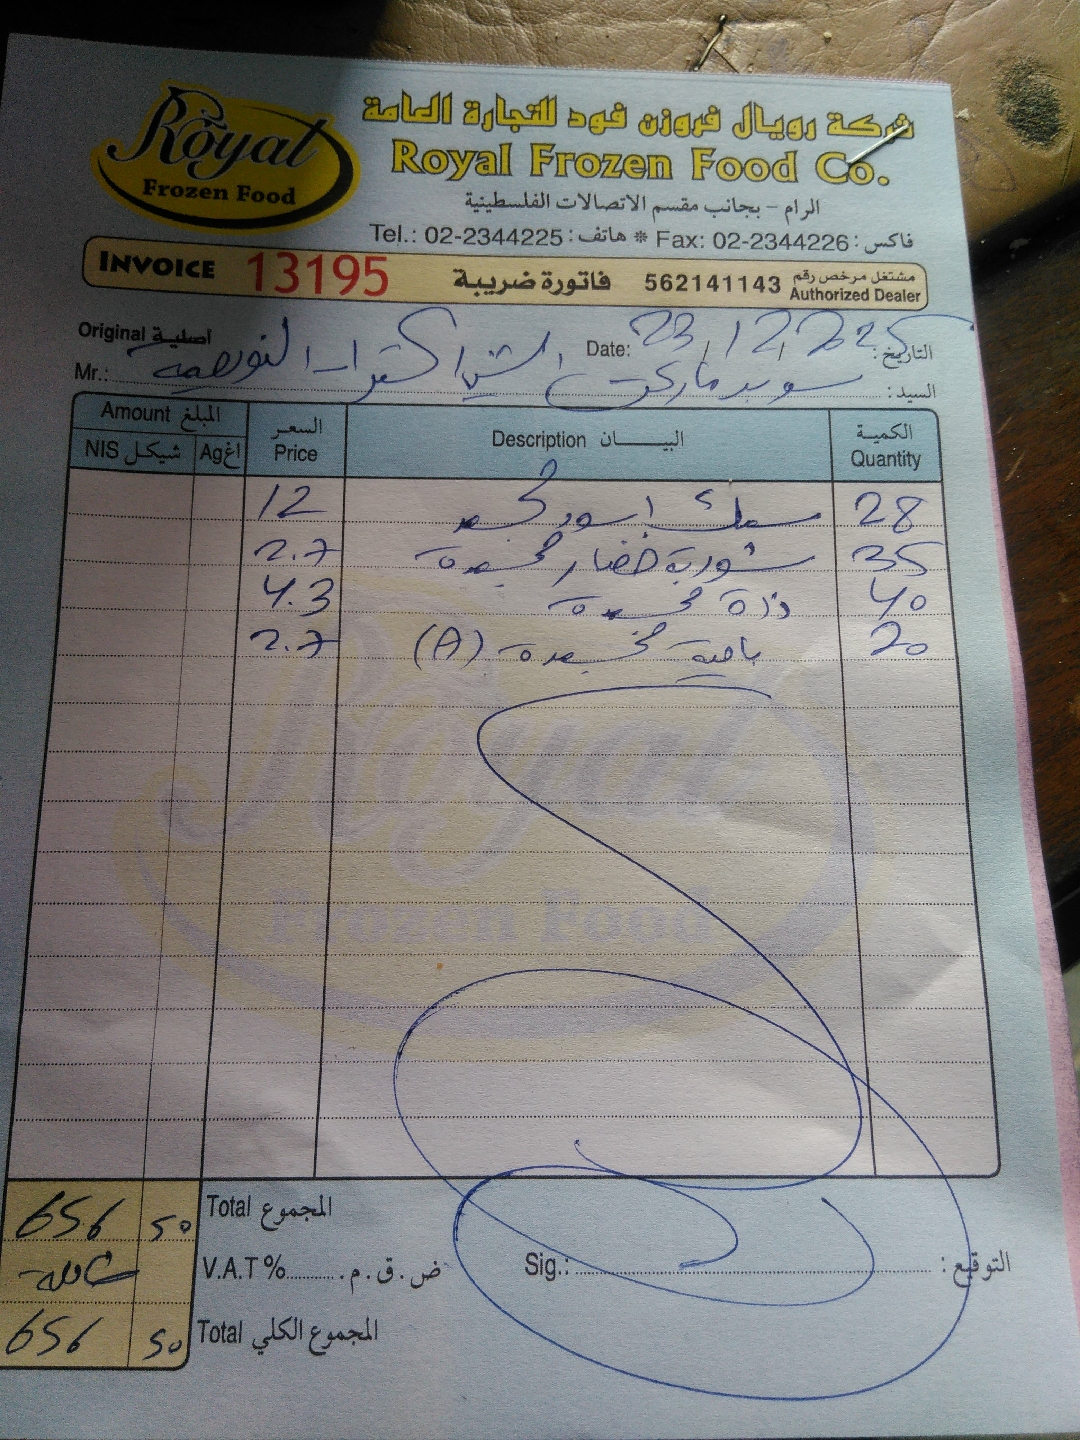 Royal
Frozen Food
شركة رويال فروزن فود للتجارة العامة
Royal Frozen Food Co.
الرام - بجانب مقسم الاتصالات الفلسطينية
Tel.: 02-2344225 : هاتف * Fax: 02-2344226 : فاكس
INVOICE 13195 فاتورة ضريبة 562141143 مشتغل مرخص رقم
Authorized Dealer
Original أصلية
Date: 23/12/2025 التاريخ:
Mr.: سوبرماركت السيد:
Amount المبلغ السعر Price Description البيـــان الكمية Quantity
NIS شيكل Ag اغ
12 سمك اسود مجمد 28
2.7 شوربة خضار مجمدة 35
4.3 ذرة مجمدة 40
2.7 بامية مجمدة (A) 20
Royal
Frozen Food
656 50 Total المجموع
شاملة V.A.T%......... ض.ق.م.
Sig.: التوقيع:
656 50 Total المجموع الكلي